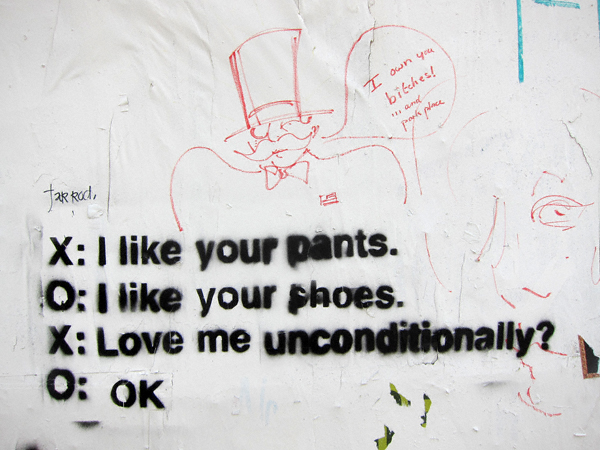 I own you
bitches!
...and
park place
Jarrod.
X: I like your pants.
O: I like your shoes.
X: Love me unconditionally?
O: OK